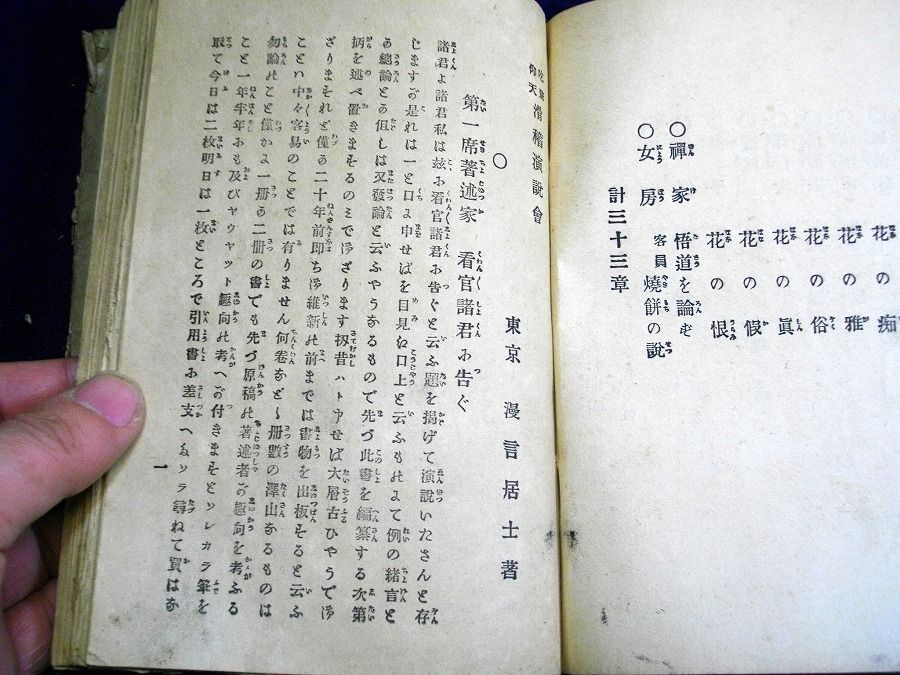 花の痴
花の雅
花の俗
花の眞
花の假
花の恨
○禪家 悟道を論ず
○女房 客員 燒餅の說
計三十三章
仰天 滑稽演說會
東京 漫言居士著
第一席著述家 看官諸君に告ぐ
○
諸君よ諸君私は玆に看官諸君に告ぐと云ふ題を揭げて演說いたさんと存
じますが是れは一と口に申せば目見え口上と云ふものにて例の緒言と
か總論とか但しは又發論と云ふやうなもので先づ此書を編纂する次第
柄を述べ置きまするのミで御ざります扨昔ハト申せば大層古ひやうで御
ざりまそれど僅か二十年前卽ち御維新の前までは書物を出板すると云ふ
ことハ中々容易のことでは有りません何卷など〻册數の澤山なるものは
勿論のこと僅かに一册か二册の書でも先づ原稿の著述者が趣向を考ふる
こと一年半年にも及びヤウヤット趣向の考へが付きまするとソレカラ筆を
取て今日は二枚明日は一枚ところで引用書に差支へるソラ尋ねて買はな
一